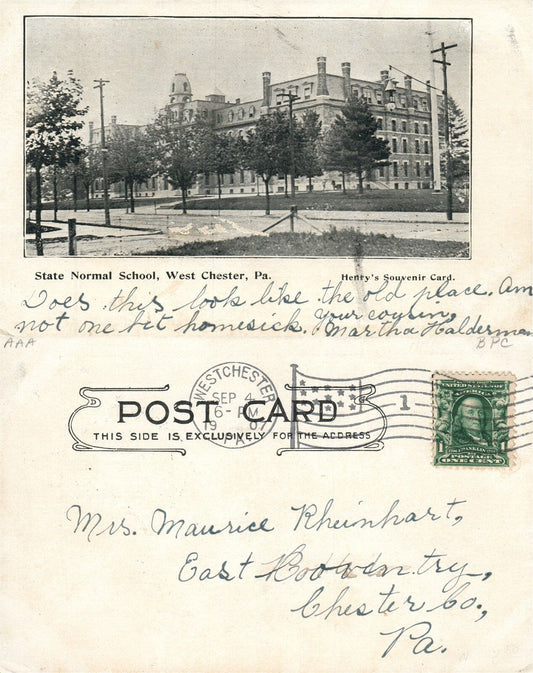 State Normal School, West Chester, Pa.
Henry's Souvenir Card.
Does this look like the old place. Am
not one bit homesick. Your cousin,
Martha Halderman
AAA
BPC
WESTCHESTER
SEP 4
6-PM
19
PA
1
POST CARD
THIS SIDE IS EXCLUSIVELY FOR THE ADDRESS
UNITED STATES OF AMERICA
POSTAGE
1 ONE CENT 1
Mrs. Maurice Rheinhart,
East
Chester Co.,
Pa.